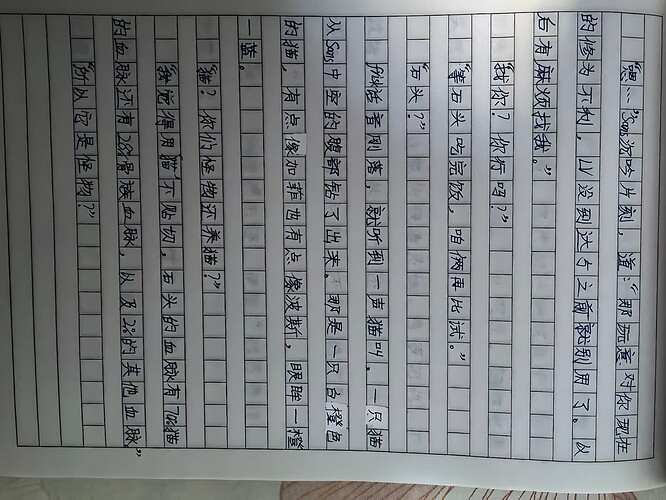 “嗯…”Sans沉吟片刻，道：“那玩意对你现在
的修为不利，LV没到达5之前就别用了。以
后有麻烦找我。”
“找你？你行吗？”
“等石头吃完饭，咱俩再比试。”
“石头？”
frisk话音刚落，就听到一声猫叫，一只猫
从Sans中空的腹部钻了出来。那是一只白橙色
的猫，有点像加菲也有点像波斯，眼眸一橙
一蓝。
“猫？你们怪物还养猫？”
“我觉得用猫不贴切，石头的血脉有70%猫
的血脉还有28%骨族血脉，以及2%的其他血脉”
“所以它是怪物？”